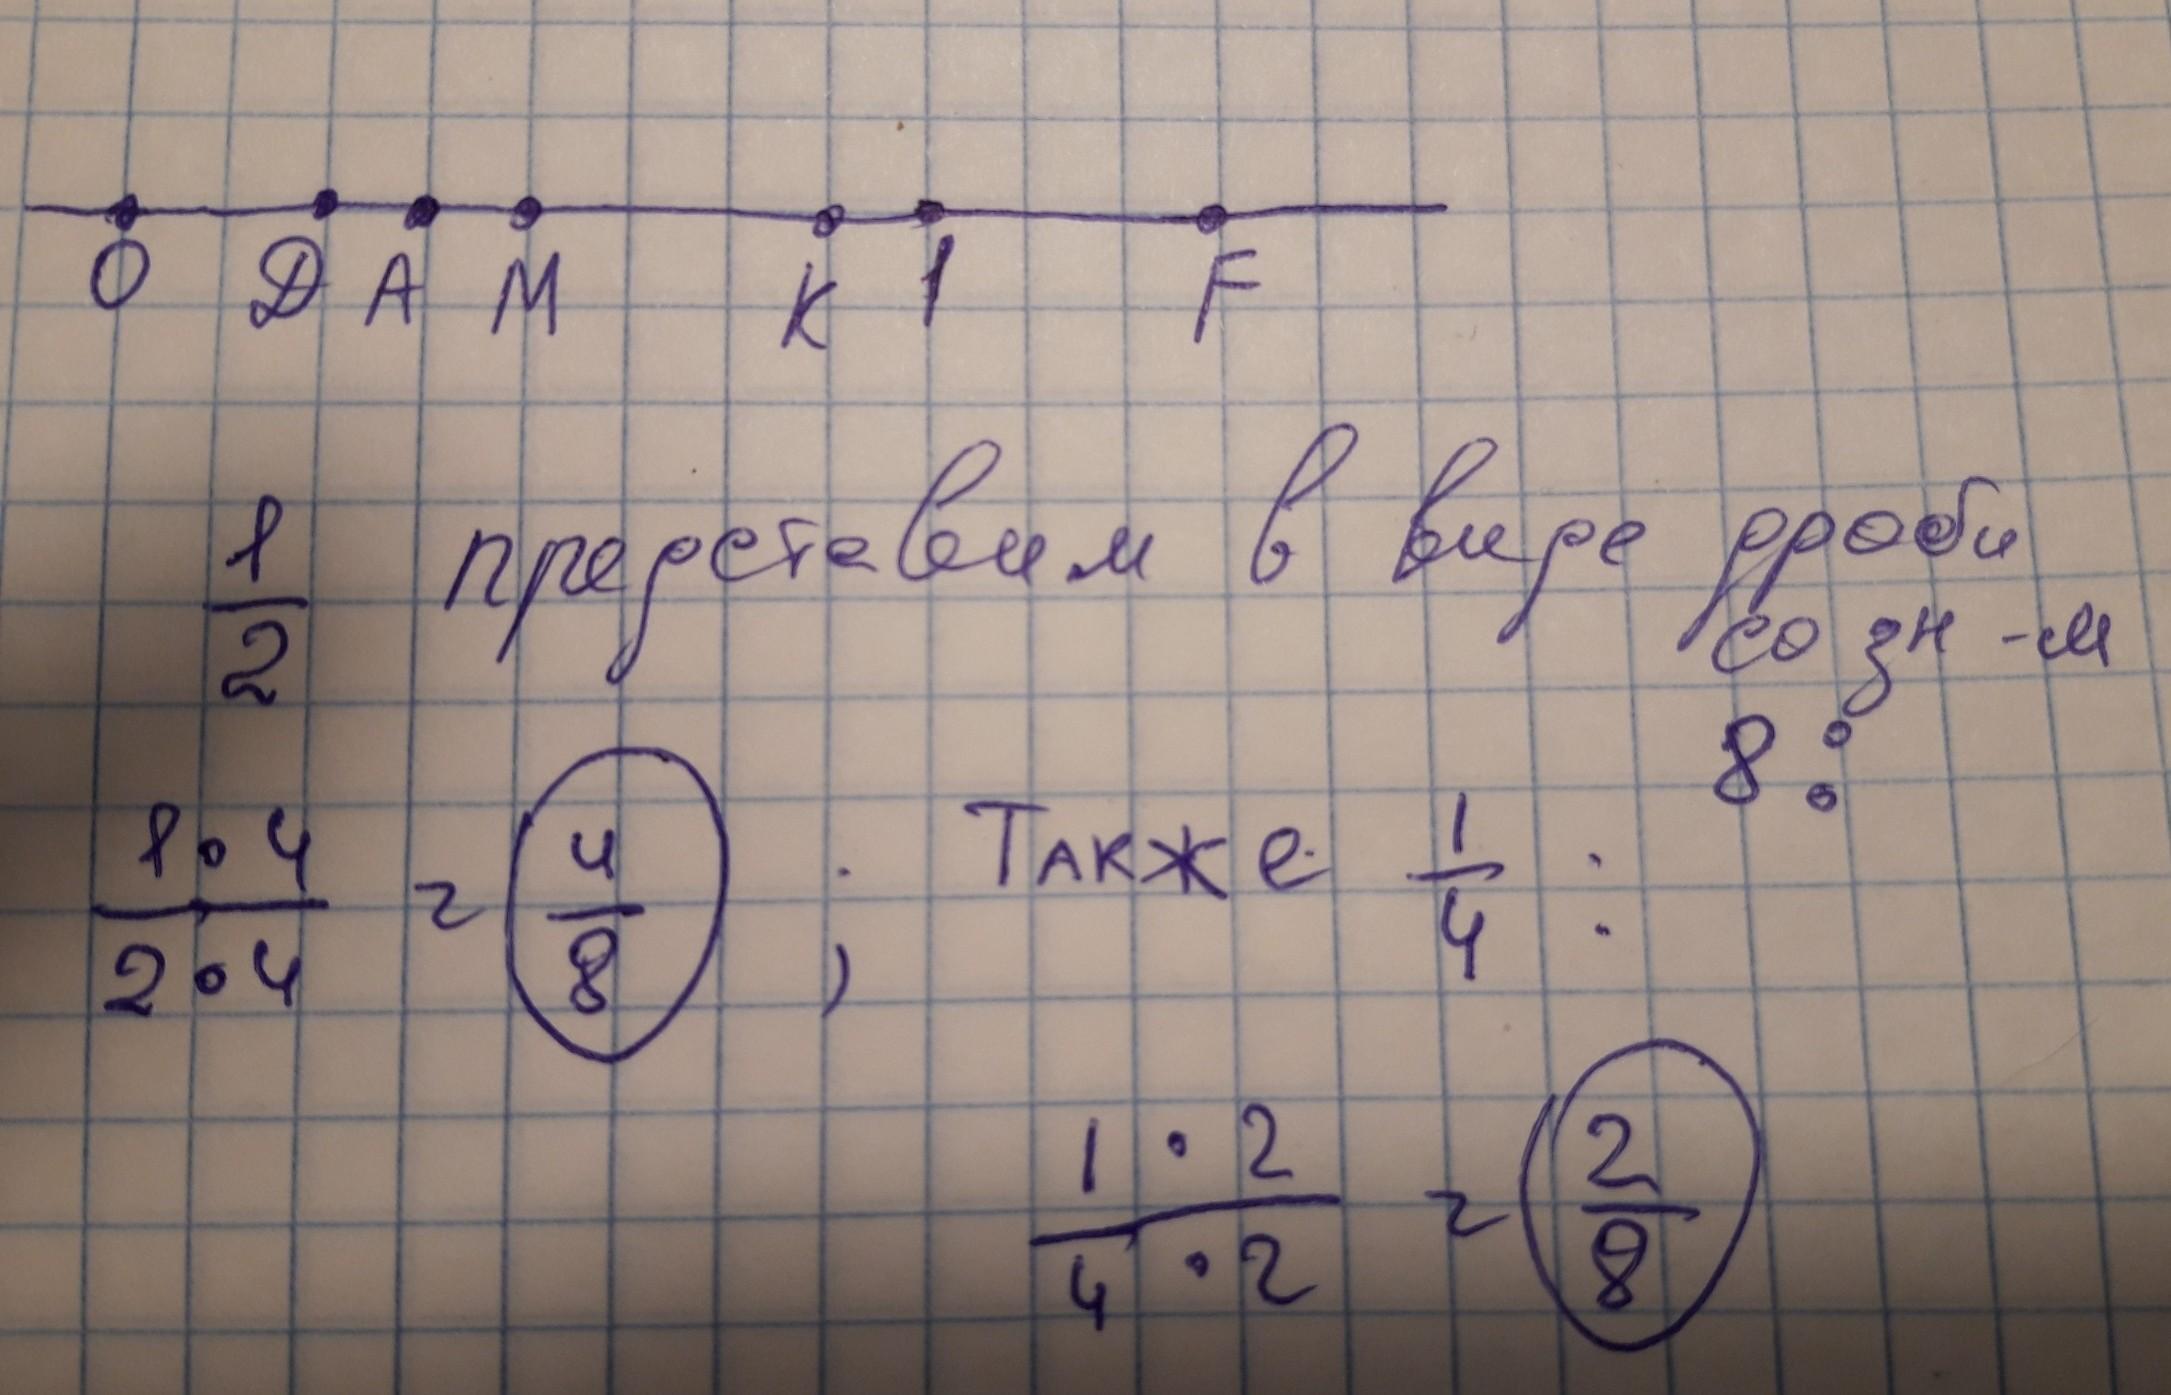 O D A M K 1 F
1/2 представим в виде дроби
со зн-м
8:
1•4/2•4 = 4/8 ; Также 1/4 :
1•2/4•2 = 2/8